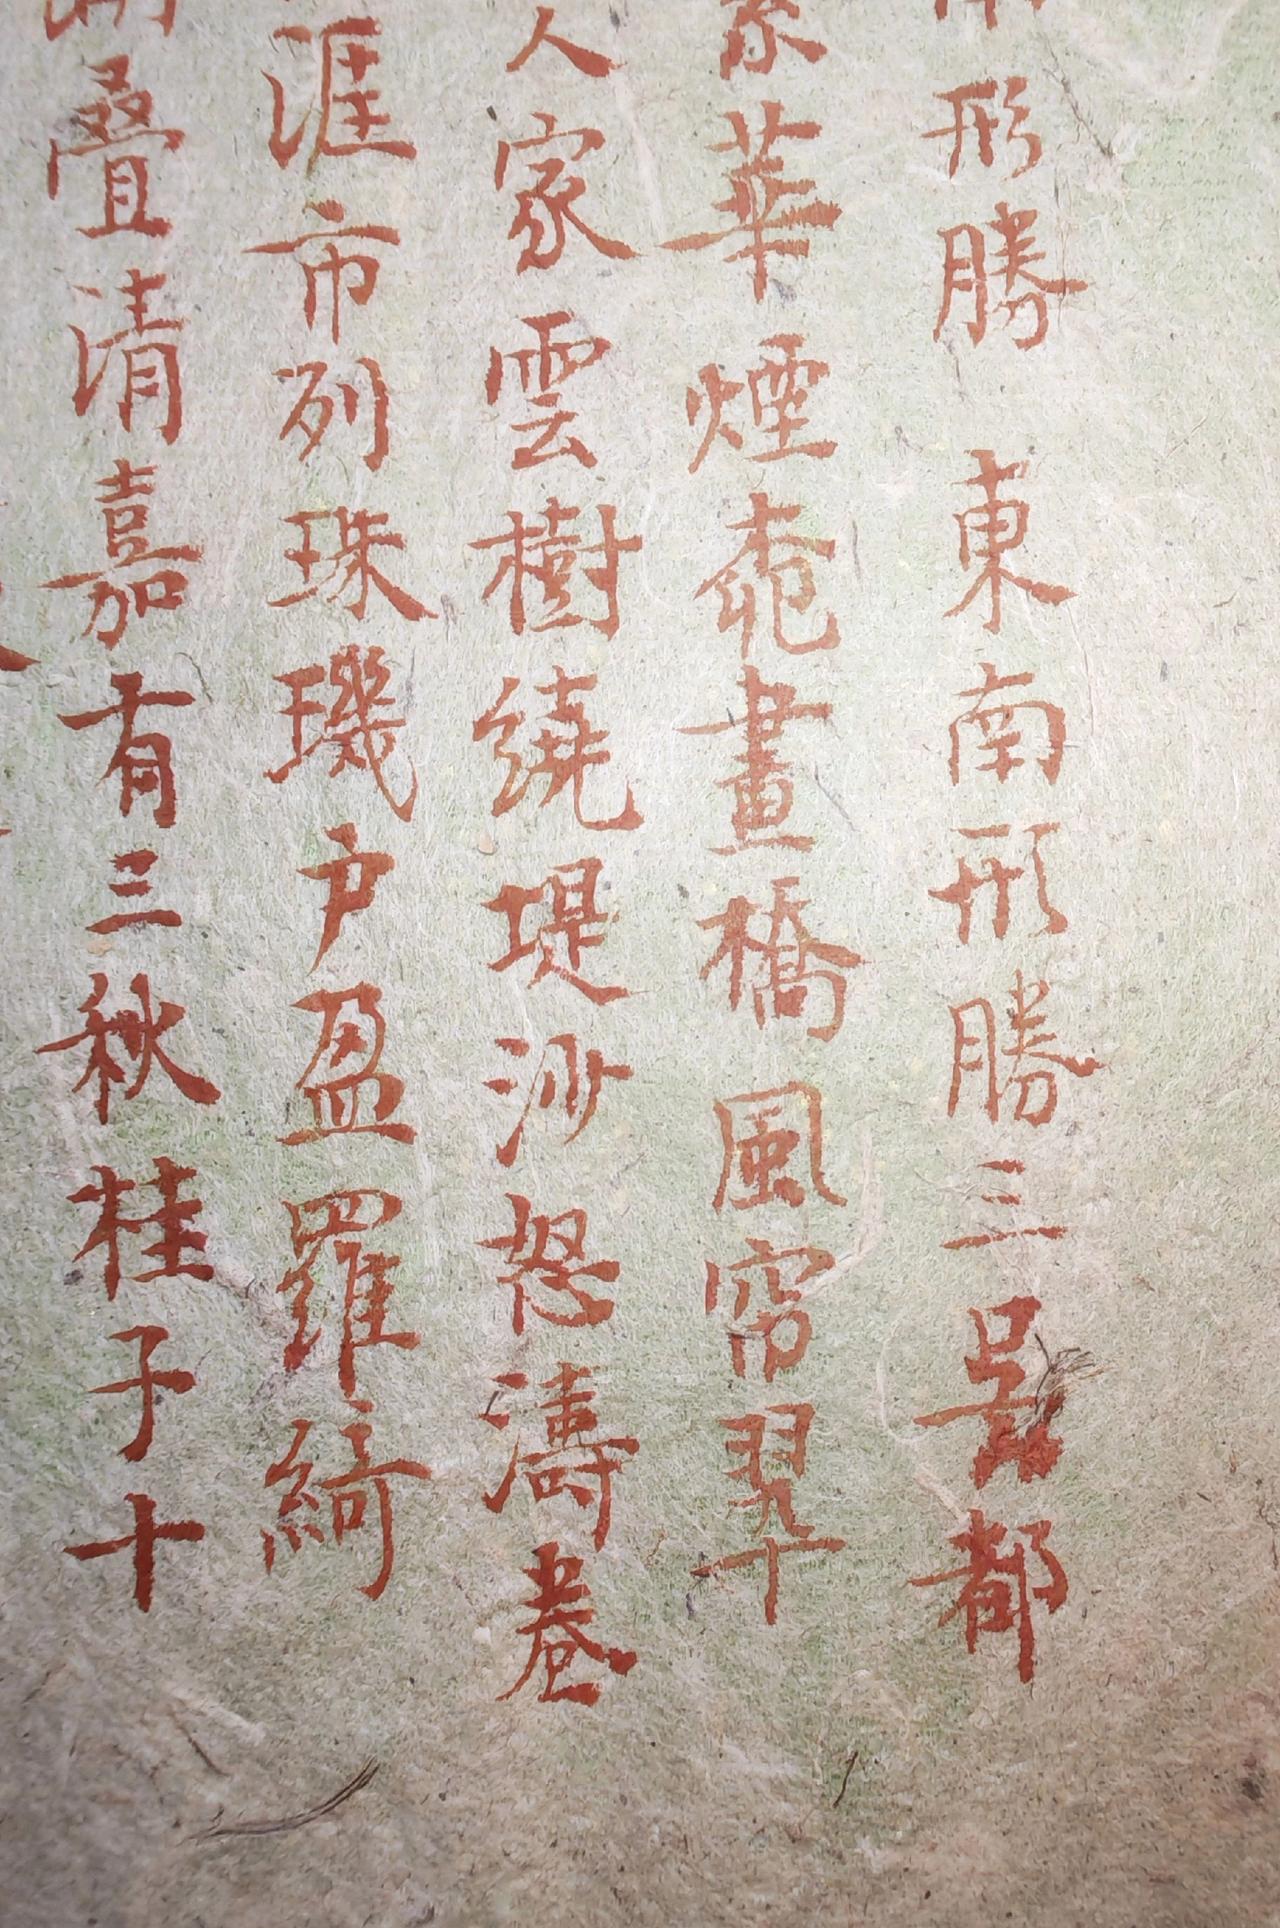 形勝 東南形勝三吳都
華煙柳畫橋風帘翠
人家雲樹繞堤沙怒濤卷
涯市列珠璣户盈羅綺
叠清嘉有三秋桂子十